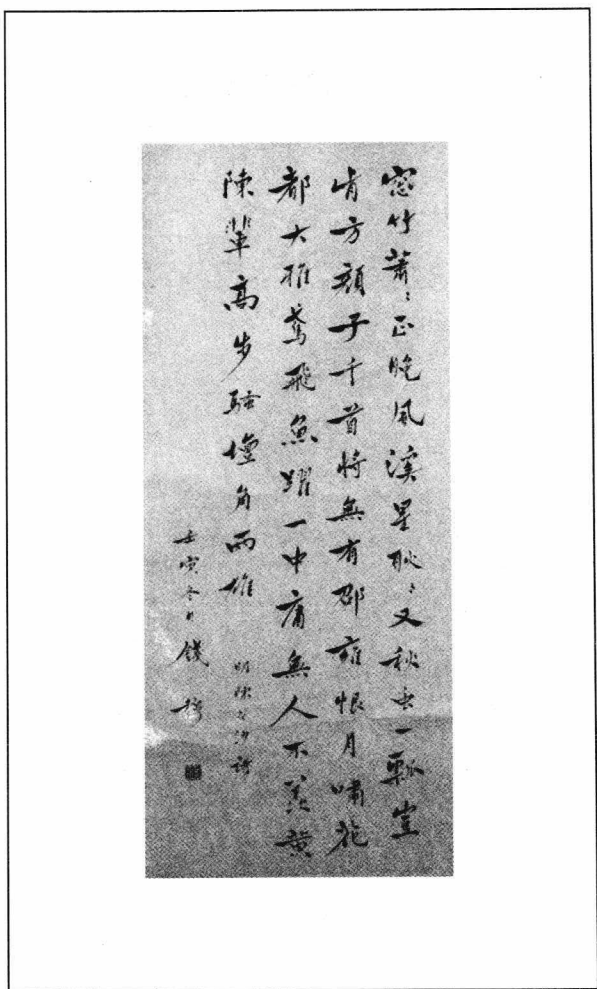 窓竹萧〻正晚風溪星耿〻又秋虫一瓢豈
肯方顔子千首將無有邵雍恨月嘯花
都大雅鳶飛魚躍一中庸無人不羨黄
陳輩高步騷壇角兩雄
明陳白沙詩
壬寅冬日錢穆